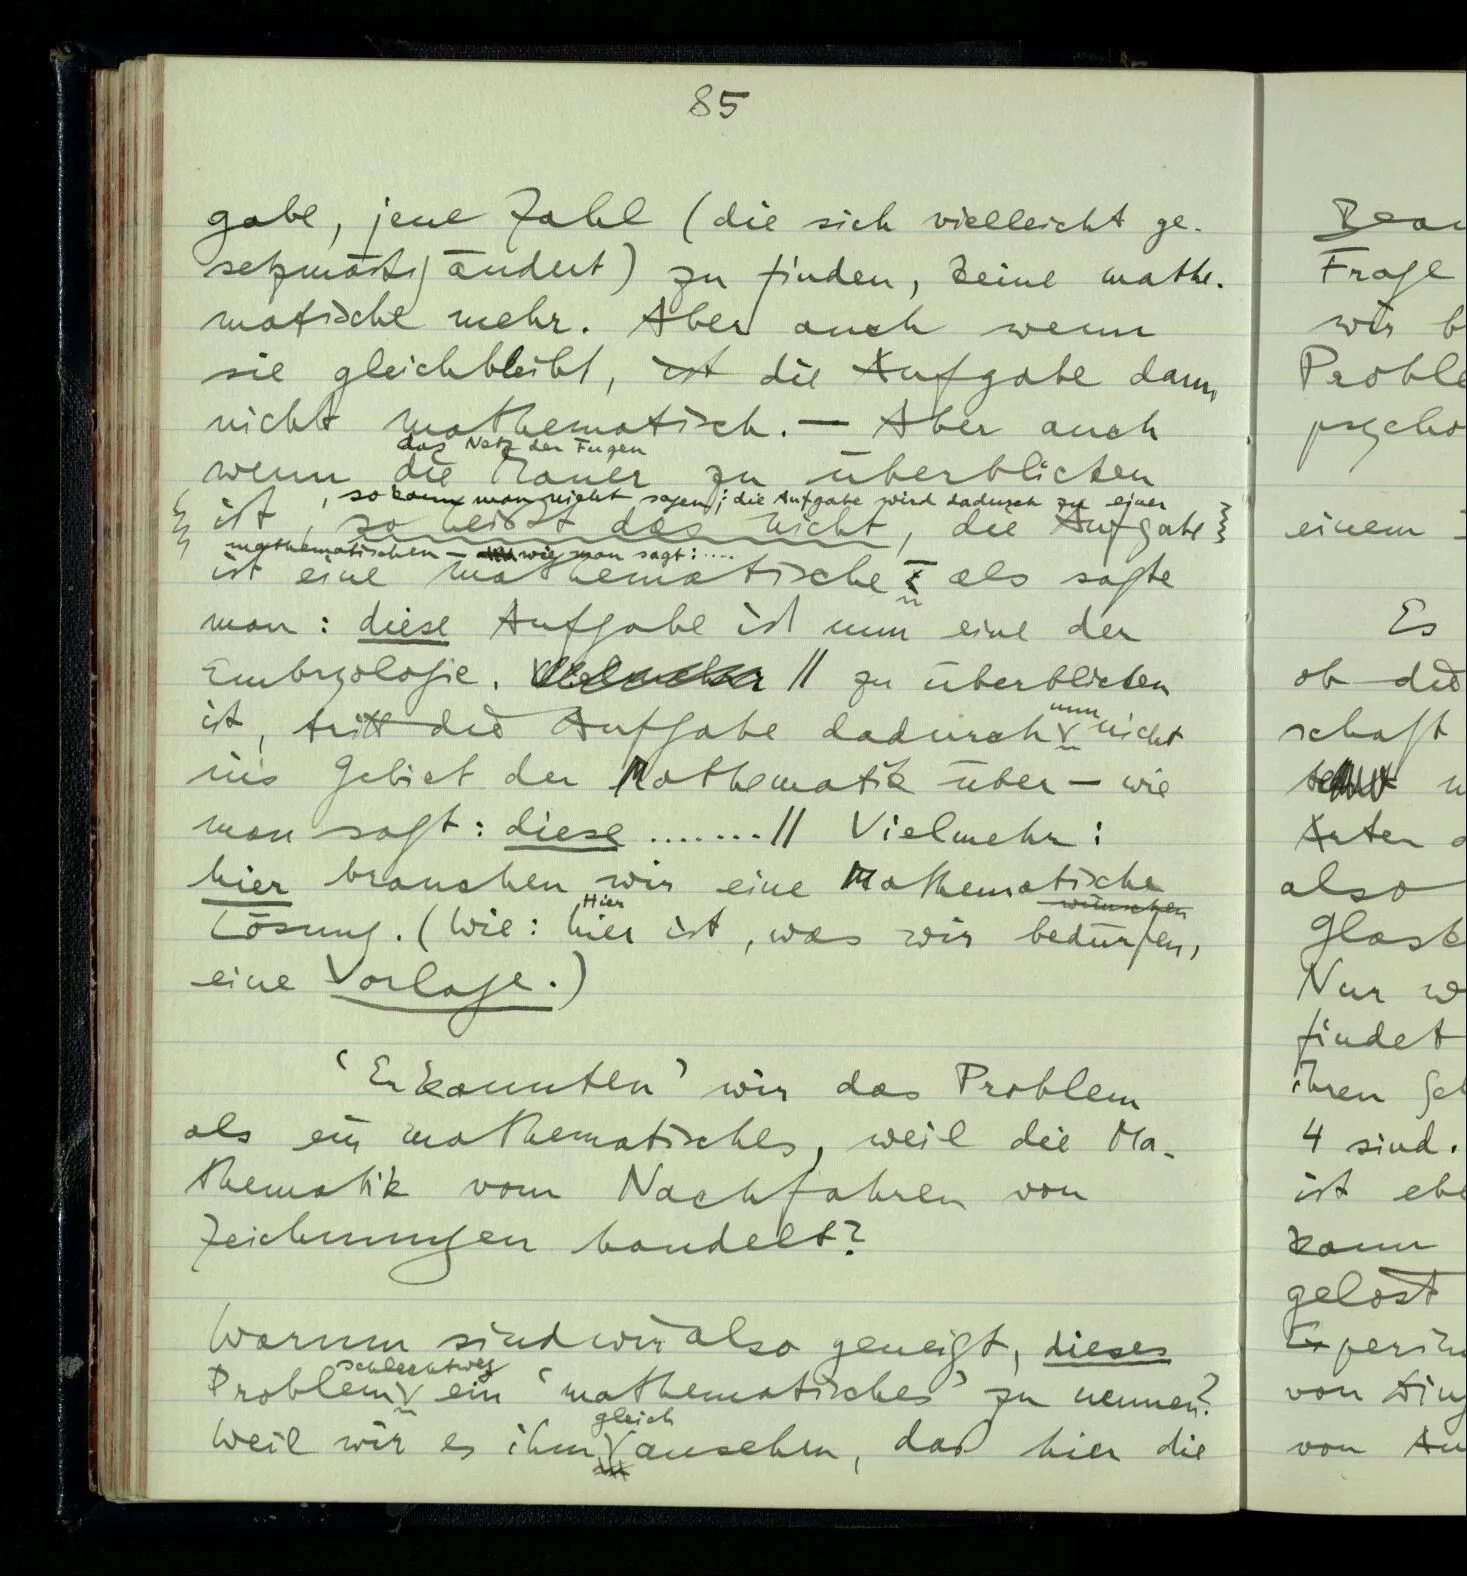 85
gabe, jene Zahl (die sich vielleicht ge-
setzmäßig ändert) zu finden, keine mathe-
matische mehr. Aber auch wenn
sie gleichbleibt, ist die Aufgabe darum
nicht mathematisch. — Aber auch
das Netz der Fugen
wenn die Mauer zu überblicken
, so kann man nicht sagen: die Aufgabe wird dadurch zu einer
ist, so heißt das nicht, die Aufgabe
mathematischen — wie man sagt: ....
ist eine mathematische als sagte
man: diese Aufgabe ist nun eine der
Embryologie. Vielmehr || zu überblicken
nun
ist, tritt die Aufgabe dadurch nicht
ins Gebiet der Mathematik über — wie
man sagt: diese .......|| Vielmehr:
hier brauchen wir eine Mathematische
Hier wünschen
Lösung. (Wie: hier ist, was wir bedürfen,
eine Vorlage.)
‘Erkannten’ wir das Problem
als ein mathematisches, weil die Ma-
thematik vom Nachfahren von
Zeichnungen handelt?
Warum sind wir also geneigt, dieses
schlechtweg
Problem ein ‘mathematisches’ zu nennen?
gleich
Weil wir es ihm ansehen, daß hier die
Frage
wir b
Proble
psycho
einem
Es
ob die
schaft
Arten
also
Glask
Nur w
findet
ihren Geb
4 sind.
ist ebe
kann
gelöst
Experim
von Din
von Au